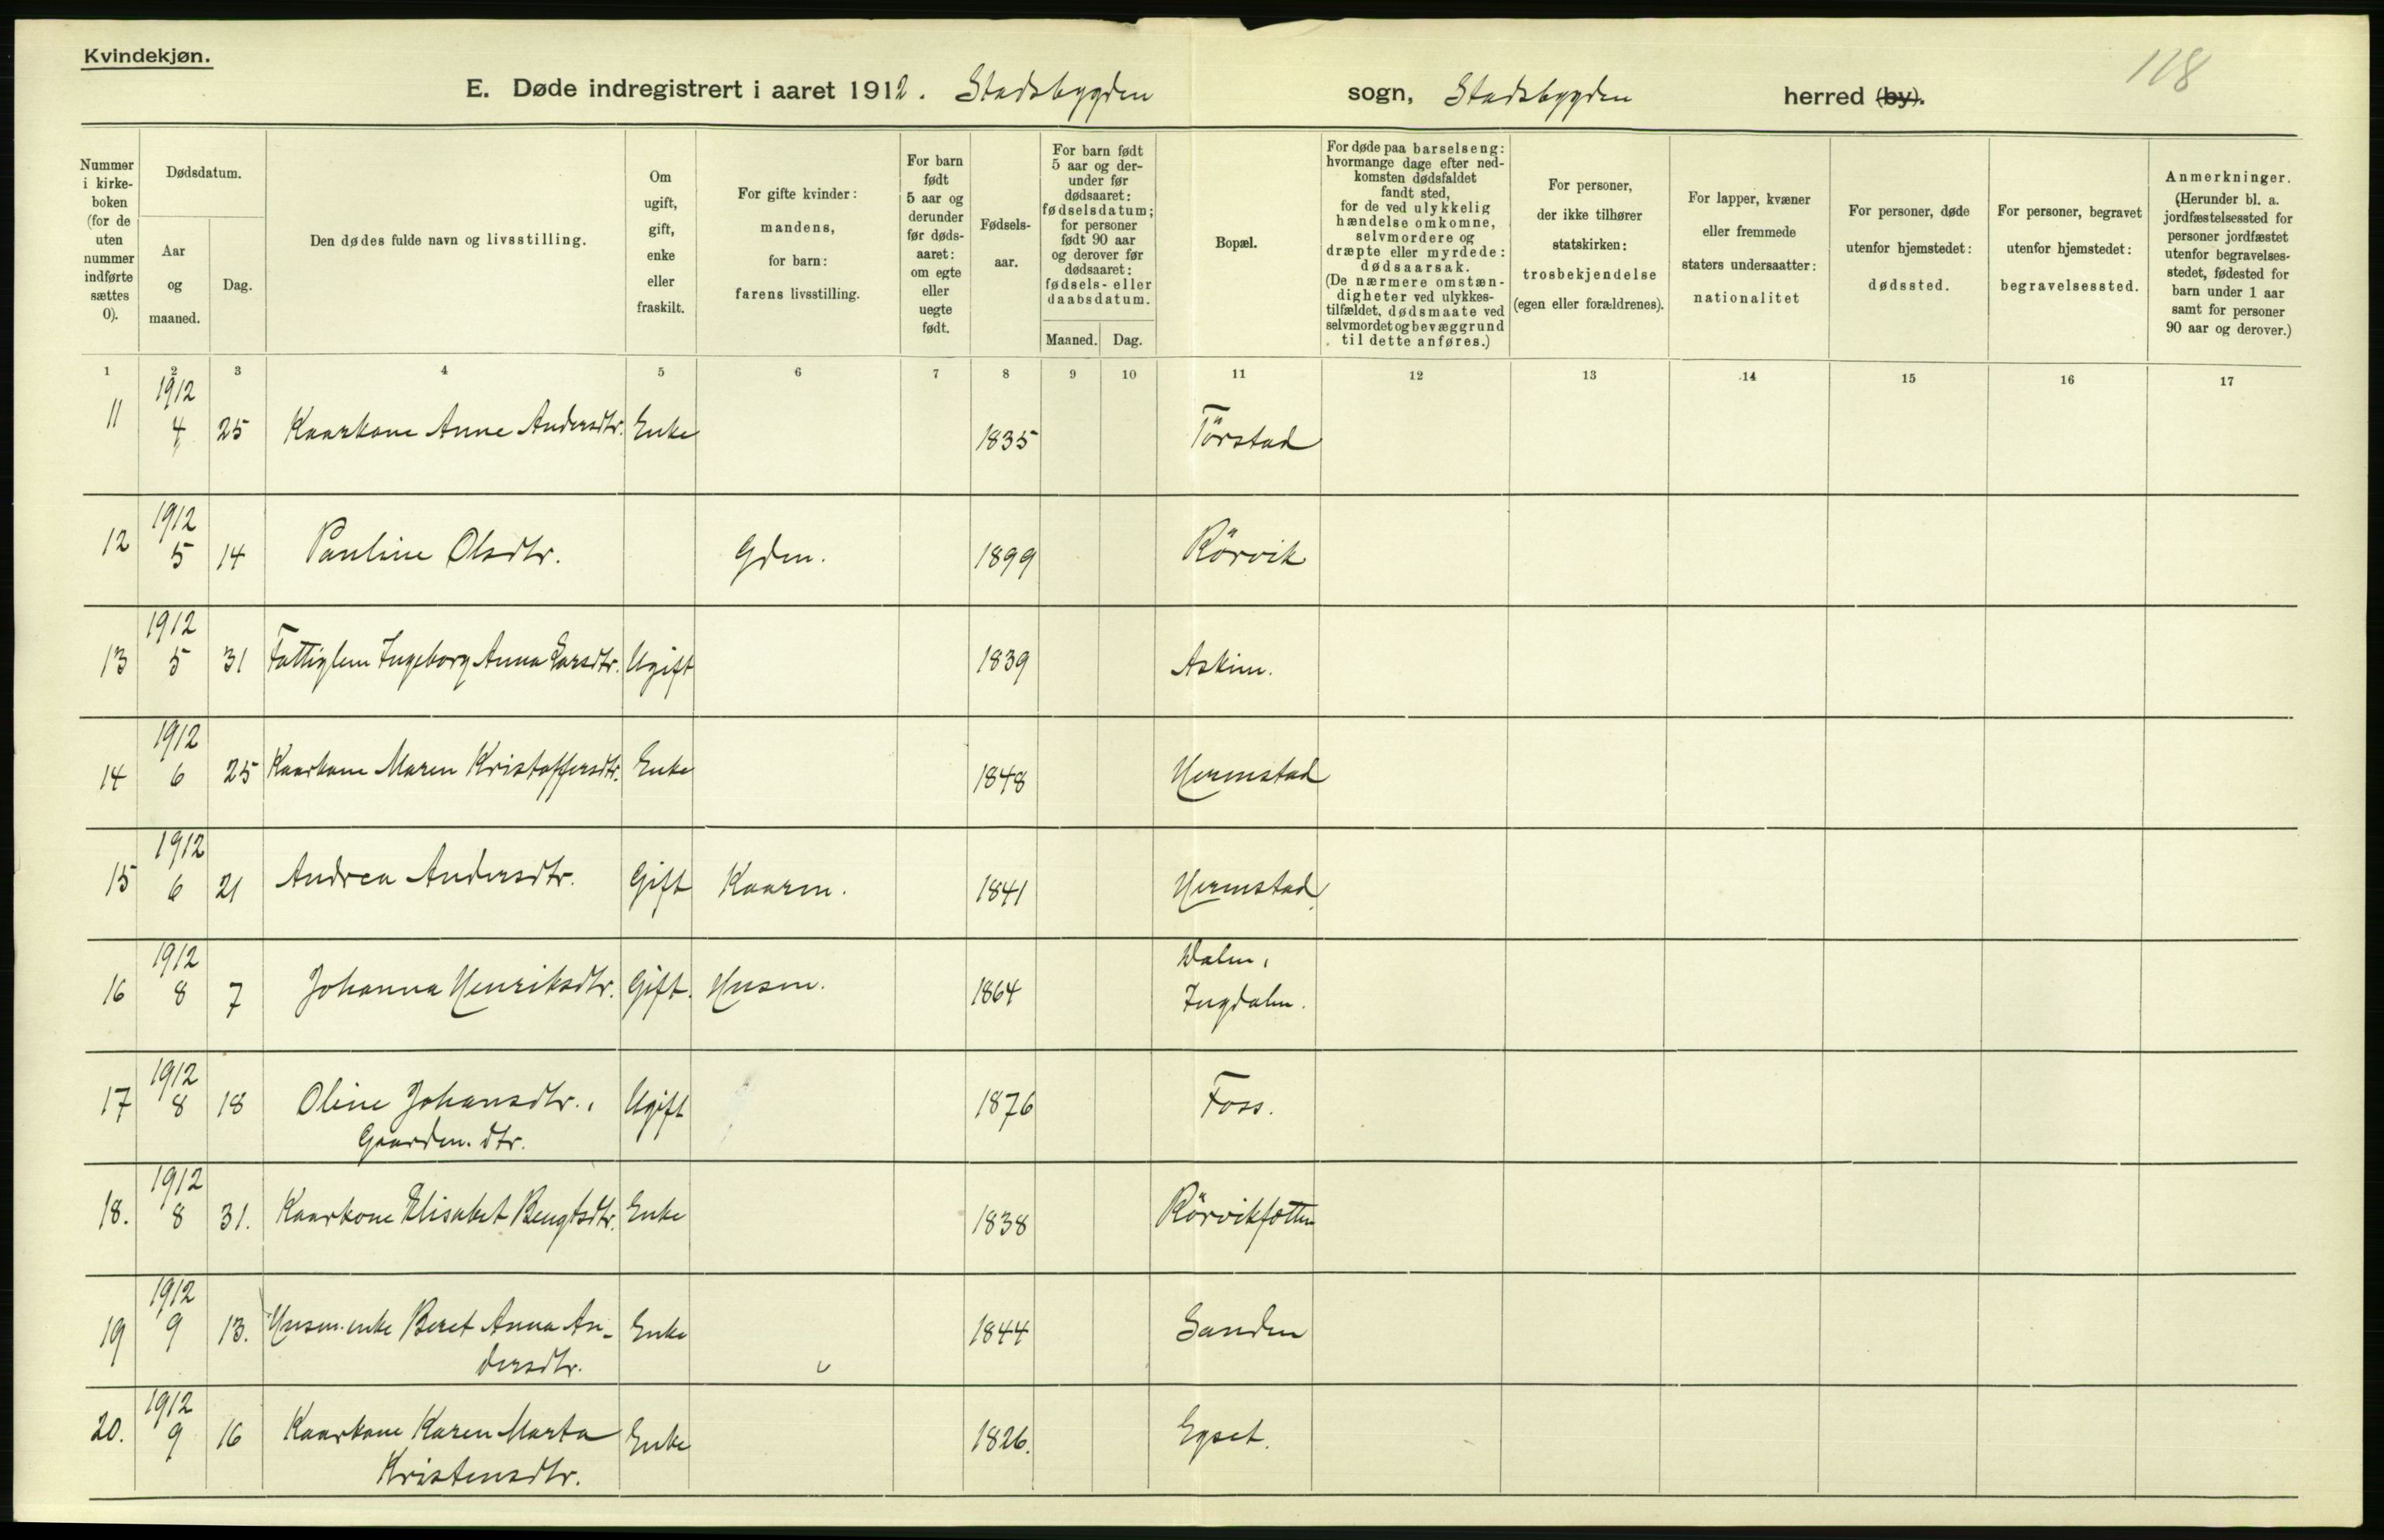 Kvindekjøn.
118
E. Døde indregistrert i aaret 1912. Stadsbygden sogn, Stadsbygden herred (by).
Nummer
i kirke-
boken
(for de
uten
nummer
indførte
sættes
0).
Dødsdatum.
Aar
og
maaned.
Dag.
Den dødes fulde navn og livsstilling.
Om
ugift,
gift,
enke
eller
fraskilt.
For gifte kvinder:
mandens,
for barn:
farens livsstilling.
For barn
født
5 aar og
derunder
før døds-
aaret:
om egte
eller
uegte
født.
Fødsels-
aar.
For barn født
5 aar og der-
under før
dødsaaret:
fødselsdatum;
for personer
født 90 aar
og derover før
dødsaaret:
fødsels- eller
daabsdatum.
Maaned.
Dag.
Bopæl.
For døde paa barselseng:
hvormange dage efter ned-
komsten dødsfaldet
fandt sted,
for de ved ulykkelig
hændelse omkomne,
selvmordere og
dræpte eller myrdede:
dødsaarsak.
(De nærmere omstæn-
digheter ved ulykkes-
tilfældet, dødsmaate ved
selvmordet og bevæggrund
til dette anføres.)
For personer,
der ikke tilhører
statskirken:
trosbekjendelse
(egen eller forældrenes).
For lapper, kvæner
eller fremmede
staters undersaatter:
nationalitet
For personer, døde
utenfor hjemstedet:
dødssted.
For personer, begravet
utenfor hjemstedet:
begravelsessted.
Anmerkninger.
(Herunder bl. a.
jordfæstelsessted for
personer jordfæstet
utenfor begravelses-
stedet, fødested for
barn under 1 aar
samt for personer
90 aar og derover.)
1 2 3 4 5 6 7 8 9 10 11 12 13 14 15 16 17
1912
11 4 25 Kaarkone Anne Andersdtr. Enke 1835 Törstad
1912
12 5 14 Pauline Olsdtr. Gdm. 1899 Rörvik
1912
13 5 31 Fattiglem Ingeborg Anna Larsdtr. Ugift 1839 Askim.
1912
14 6 25 Kaarkone Maren Kristoffersdtr. Enke 1848 Hermstad
1912
15 6 21 Andrea Andersdtr. Gift Kaarm. 1841 Hermstad
1912 Dalen,
16 8 7 Johanna Henriksdtr. Gift. Husm. 1864 Ingdalen.
1912
17 8 18 Oline Johansdtr., Ugift 1876 Foss.
Gaardm. dtr.
1912
18. 8 31. Kaarkone Elisabet Bengtsdtr. Enke 1838 Rörvikfætten
1912
19 9 13. Husm. enke Beret Anna An- Enke 1844 Sanden
dersdtr.
1912
20. 9 16 Kaarkone Karen Marta Enke 1826. Egset.
Kristensdtr.